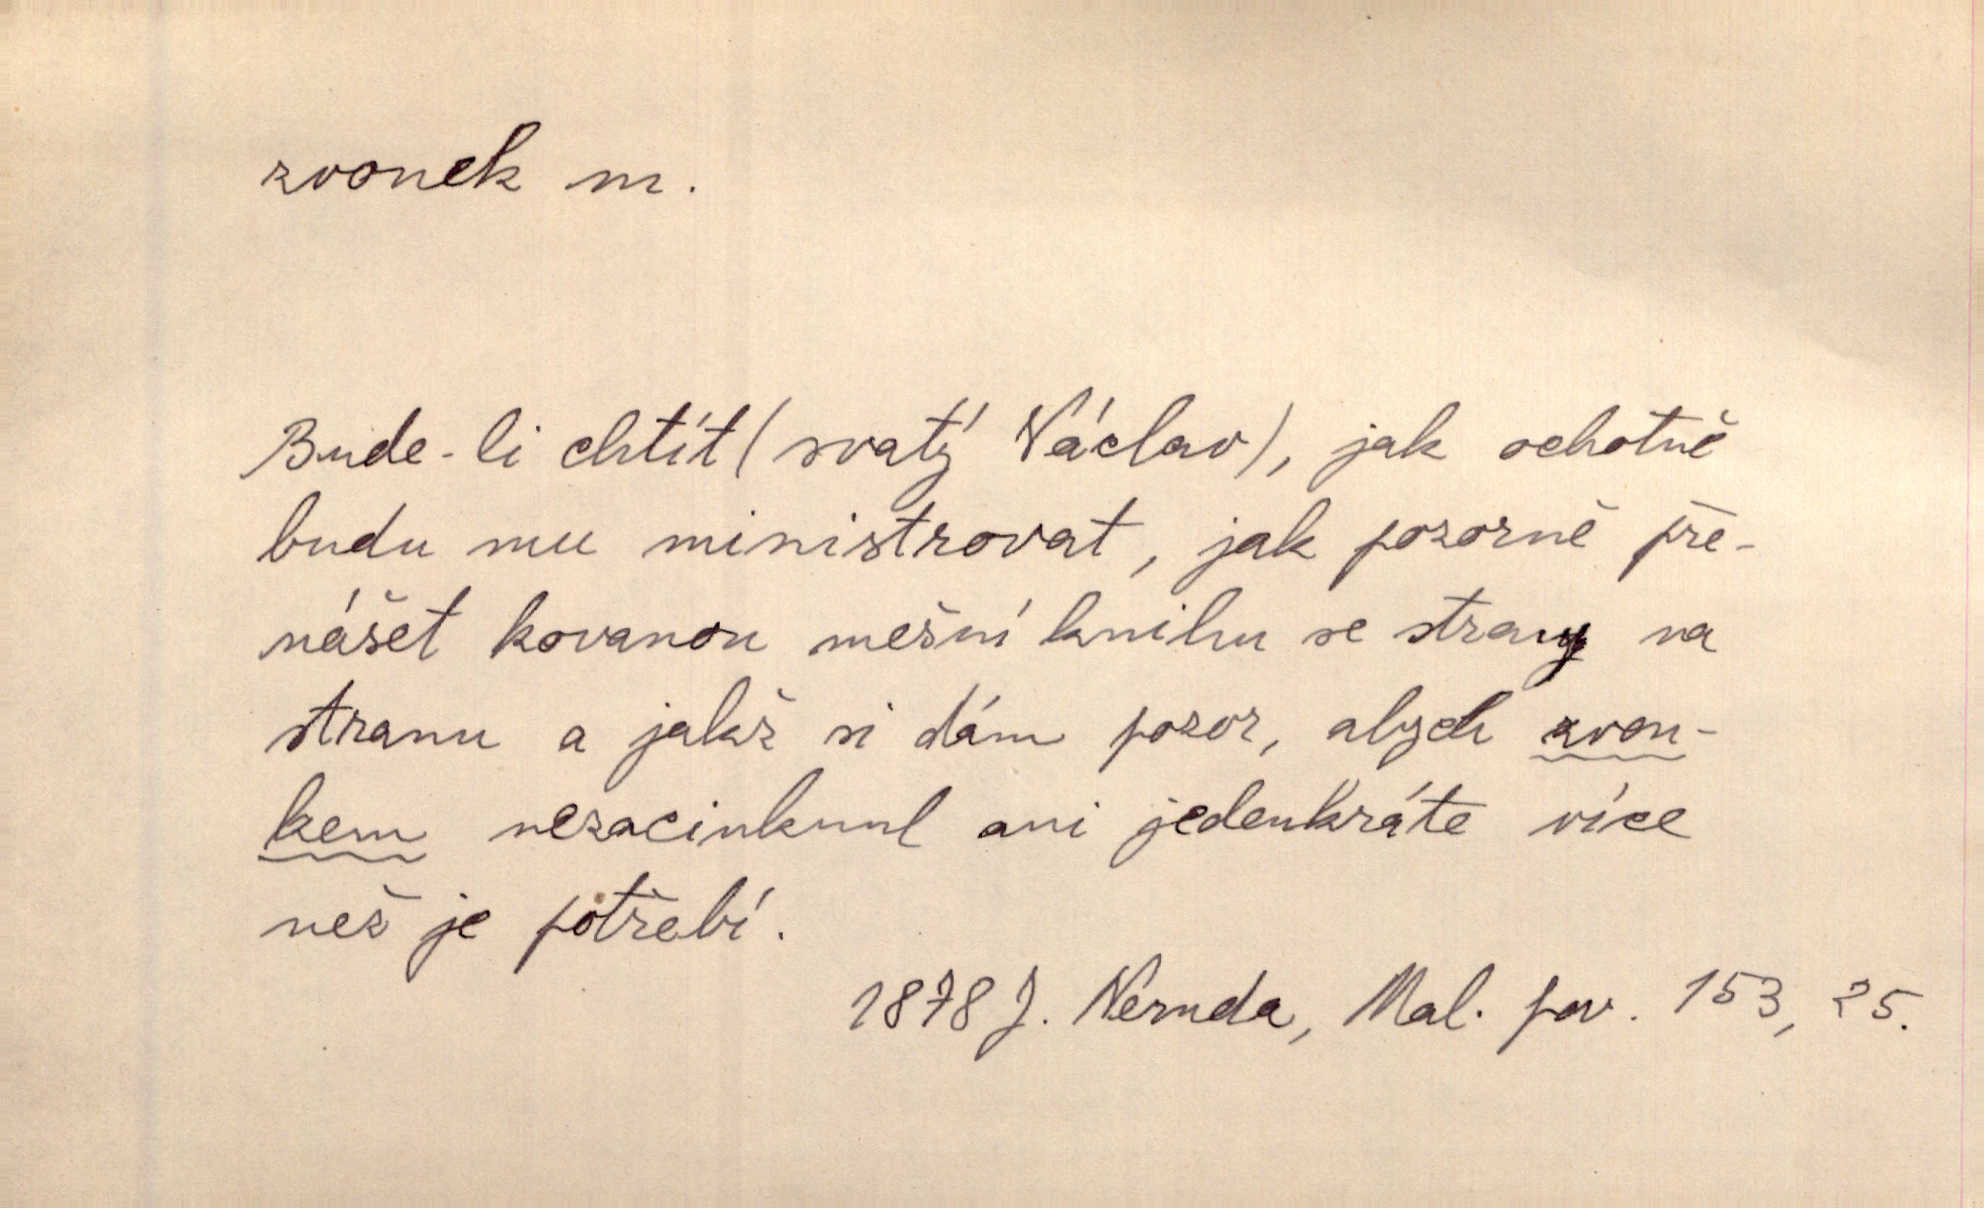 zvonek m.
Bude-li chtít (svatý Václav), jak ochotně
budu mu ministrovat, jak pozorně pře-
nášet kovanou mešní knihu se strany na
stranu a jakž si dám pozor, abych zvon-
kem nezacinknul ani jedenkráte více
než je potřebí.
1878 J. Neruda, Mal. pov. 153, 25.